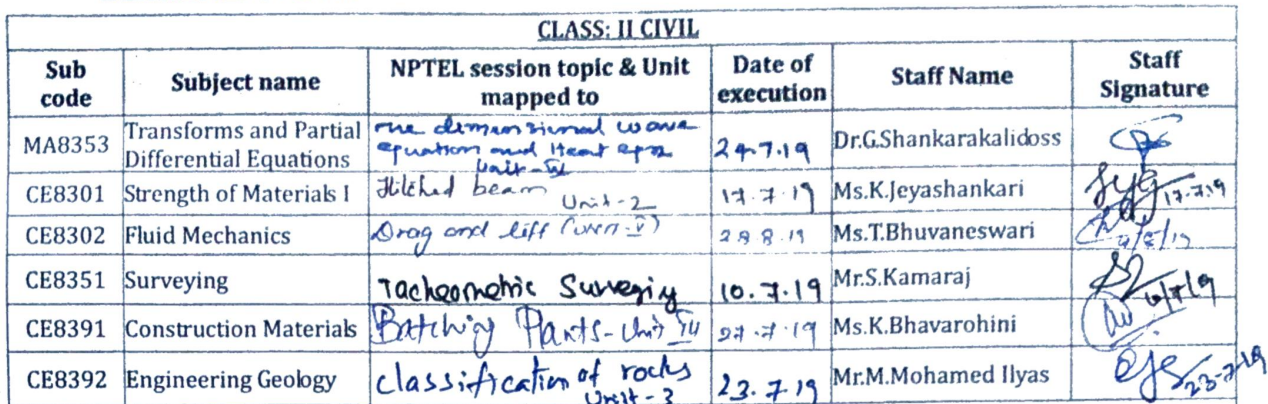 CLASS: II CIVIL
Sub code Subject name NPTEL session topic & Unit mapped to Date of execution Staff Name Staff Signature
MA8353 Transforms and Partial Differential Equations one dimensional wave equation and Heat eqn Unit-IV 24.7.19 Dr.G.Shankarakalidoss
CE8301 Strength of Materials I Flitched beam Unit-2 17.7.19 Ms.K.Jeyashankari 17.7.19
CE8302 Fluid Mechanics Drag and lift (Unit-V) 28.8.19 Ms.T.Bhuvaneswari
CE8351 Surveying Tacheometric Surveying 10.7.19 Mr.S.Kamaraj
CE8391 Construction Materials Batching Plants-Unit III 27.7.19 Ms.K.Bhavarohini
CE8392 Engineering Geology classification of rocks Unit-3 23.7.19 Mr.M.Mohamed Ilyas 23-7-19